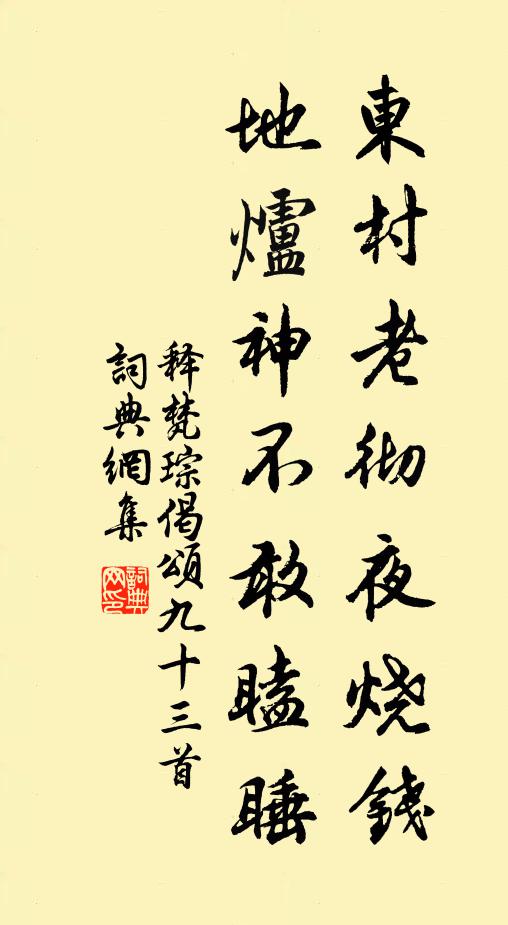 東村老彻夜烧錢
地爐神不敢瞌睡
释梵琮偈頌九十三首
詞典網集
詞典网印